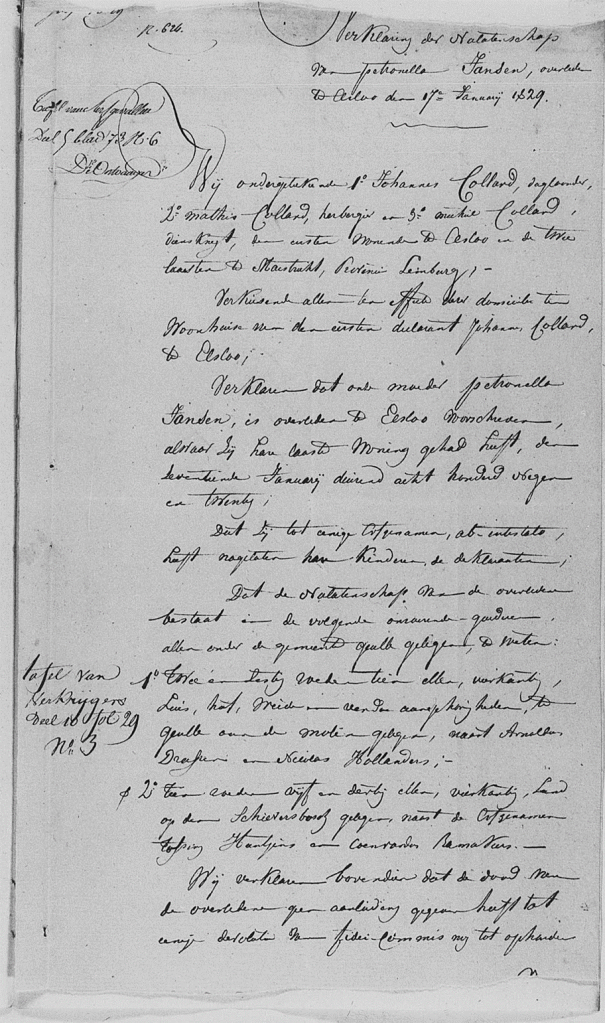 N. 626.
Verklaring der Nalatenschap
van petronella Jansen, overleden
te Eesloo den 17en Januarij 1829.
Tafel van
Deel 5 blad 73 N. 6
De Ontvanger
Wij ondergetekende 1o Johannes Colland, daglooner,
2o mathis Colland, herbergier en 3o michiel Colland,
dienstknegt, den eersten wonende te Eesloo en de twee
laasten te Maestricht, Provincie Limburg;-
Verkiesende allen ten effecte dezer domicilie ten
Woonhuise van den eersten declarant Johannes Colland,
te Eesloo;
Verklaren dat onze moeder petronella
Jansen, is overleden te Eesloo voorschreven,
alwaar zij hare laaste Woning gehad heeft, den
seventiende Januarij duizend acht honderd negen
en twentig;
Dat zij tot eenige Erfgenamen, ab-intestato,
heeft nagelaten hare kinderen, de deklaranten;
Dat de Nalatenschap van de overledene
bestaat in de volgende onroerende goederen,
allen onder de gemeente geulle gelegen, te weten:
tafel van
Verkrijgers
Deel 10 fol 29
No. 3
1o twee en sestig roeden tien ellen, vierkantig,
huis, hof, Weide en verdere aanhorigheden, te
geulle aan de molen gelegen, naast Arnoldus
en Nicolas Hollanders;-
2o tien roeden vijf en dertig ellen, vierkantig, Land
op den Schieversbosch gelegen, naast de Erfgenamen
en Coenrardus Ramakers.-
Wij verklaren bovendien dat de dood van
de overledene geen aanleiding gegeven heeft tot
eenige devolutie van fidei-commis nog tot ophouden